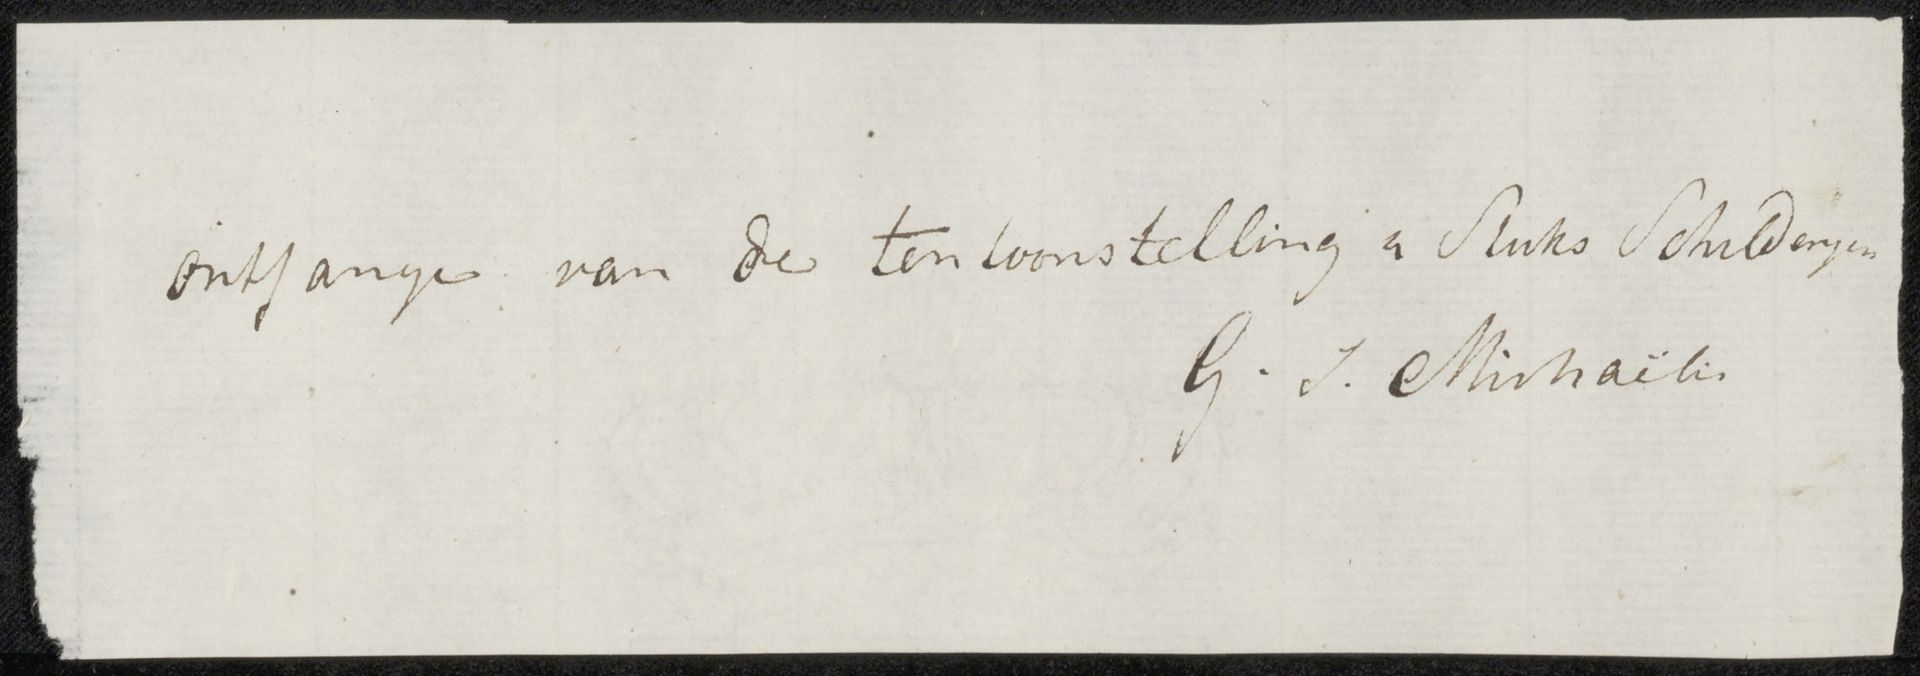 ontfange van de tentoonstelling 2 Stuks Schilderyen
G. J. Michaëlis